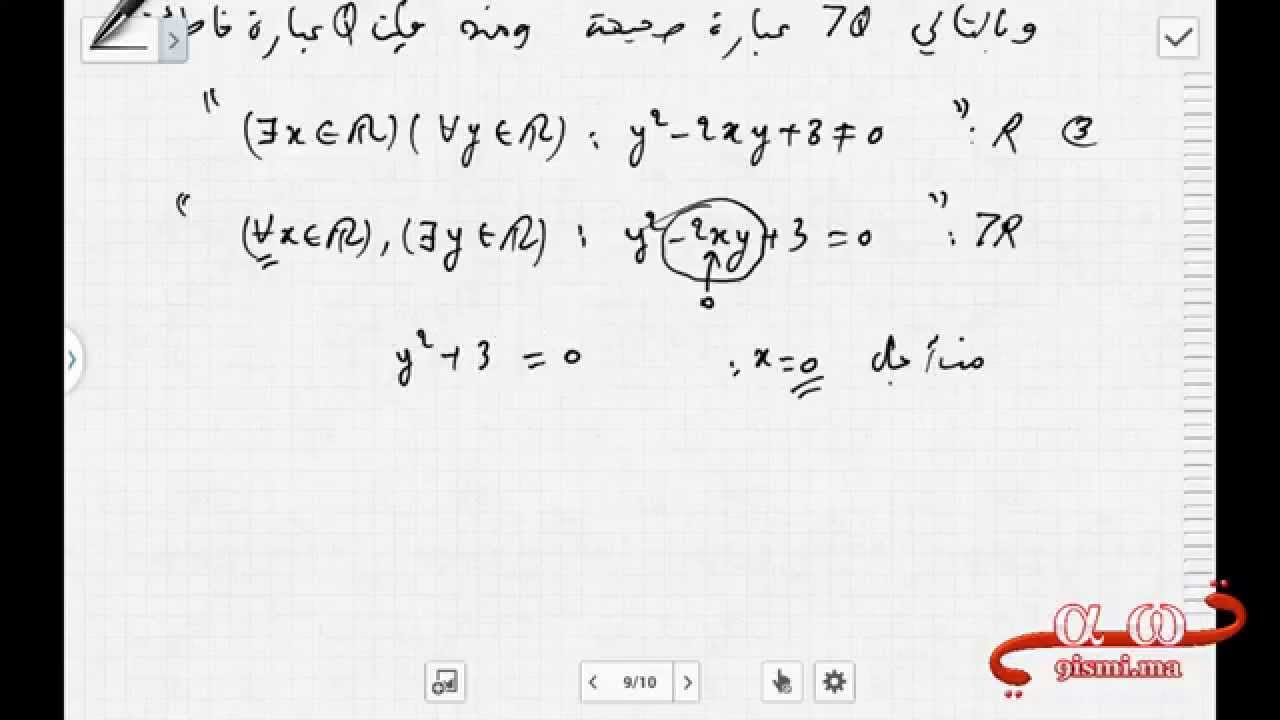 وبالتالي ⁊Q عبارة صحيحة ومنه فإن Q عبارة خاطئة
③ R : " (∃x∈ℝ)(∀y∈ℝ) : y²-2xy+3≠0 "
⁊R : " (∀x∈ℝ), (∃y∈ℝ) : y²-2xy+3 = 0 "
0
من أجل x=0 : y²+3 = 0
α ω
9ismi.ma
9/10